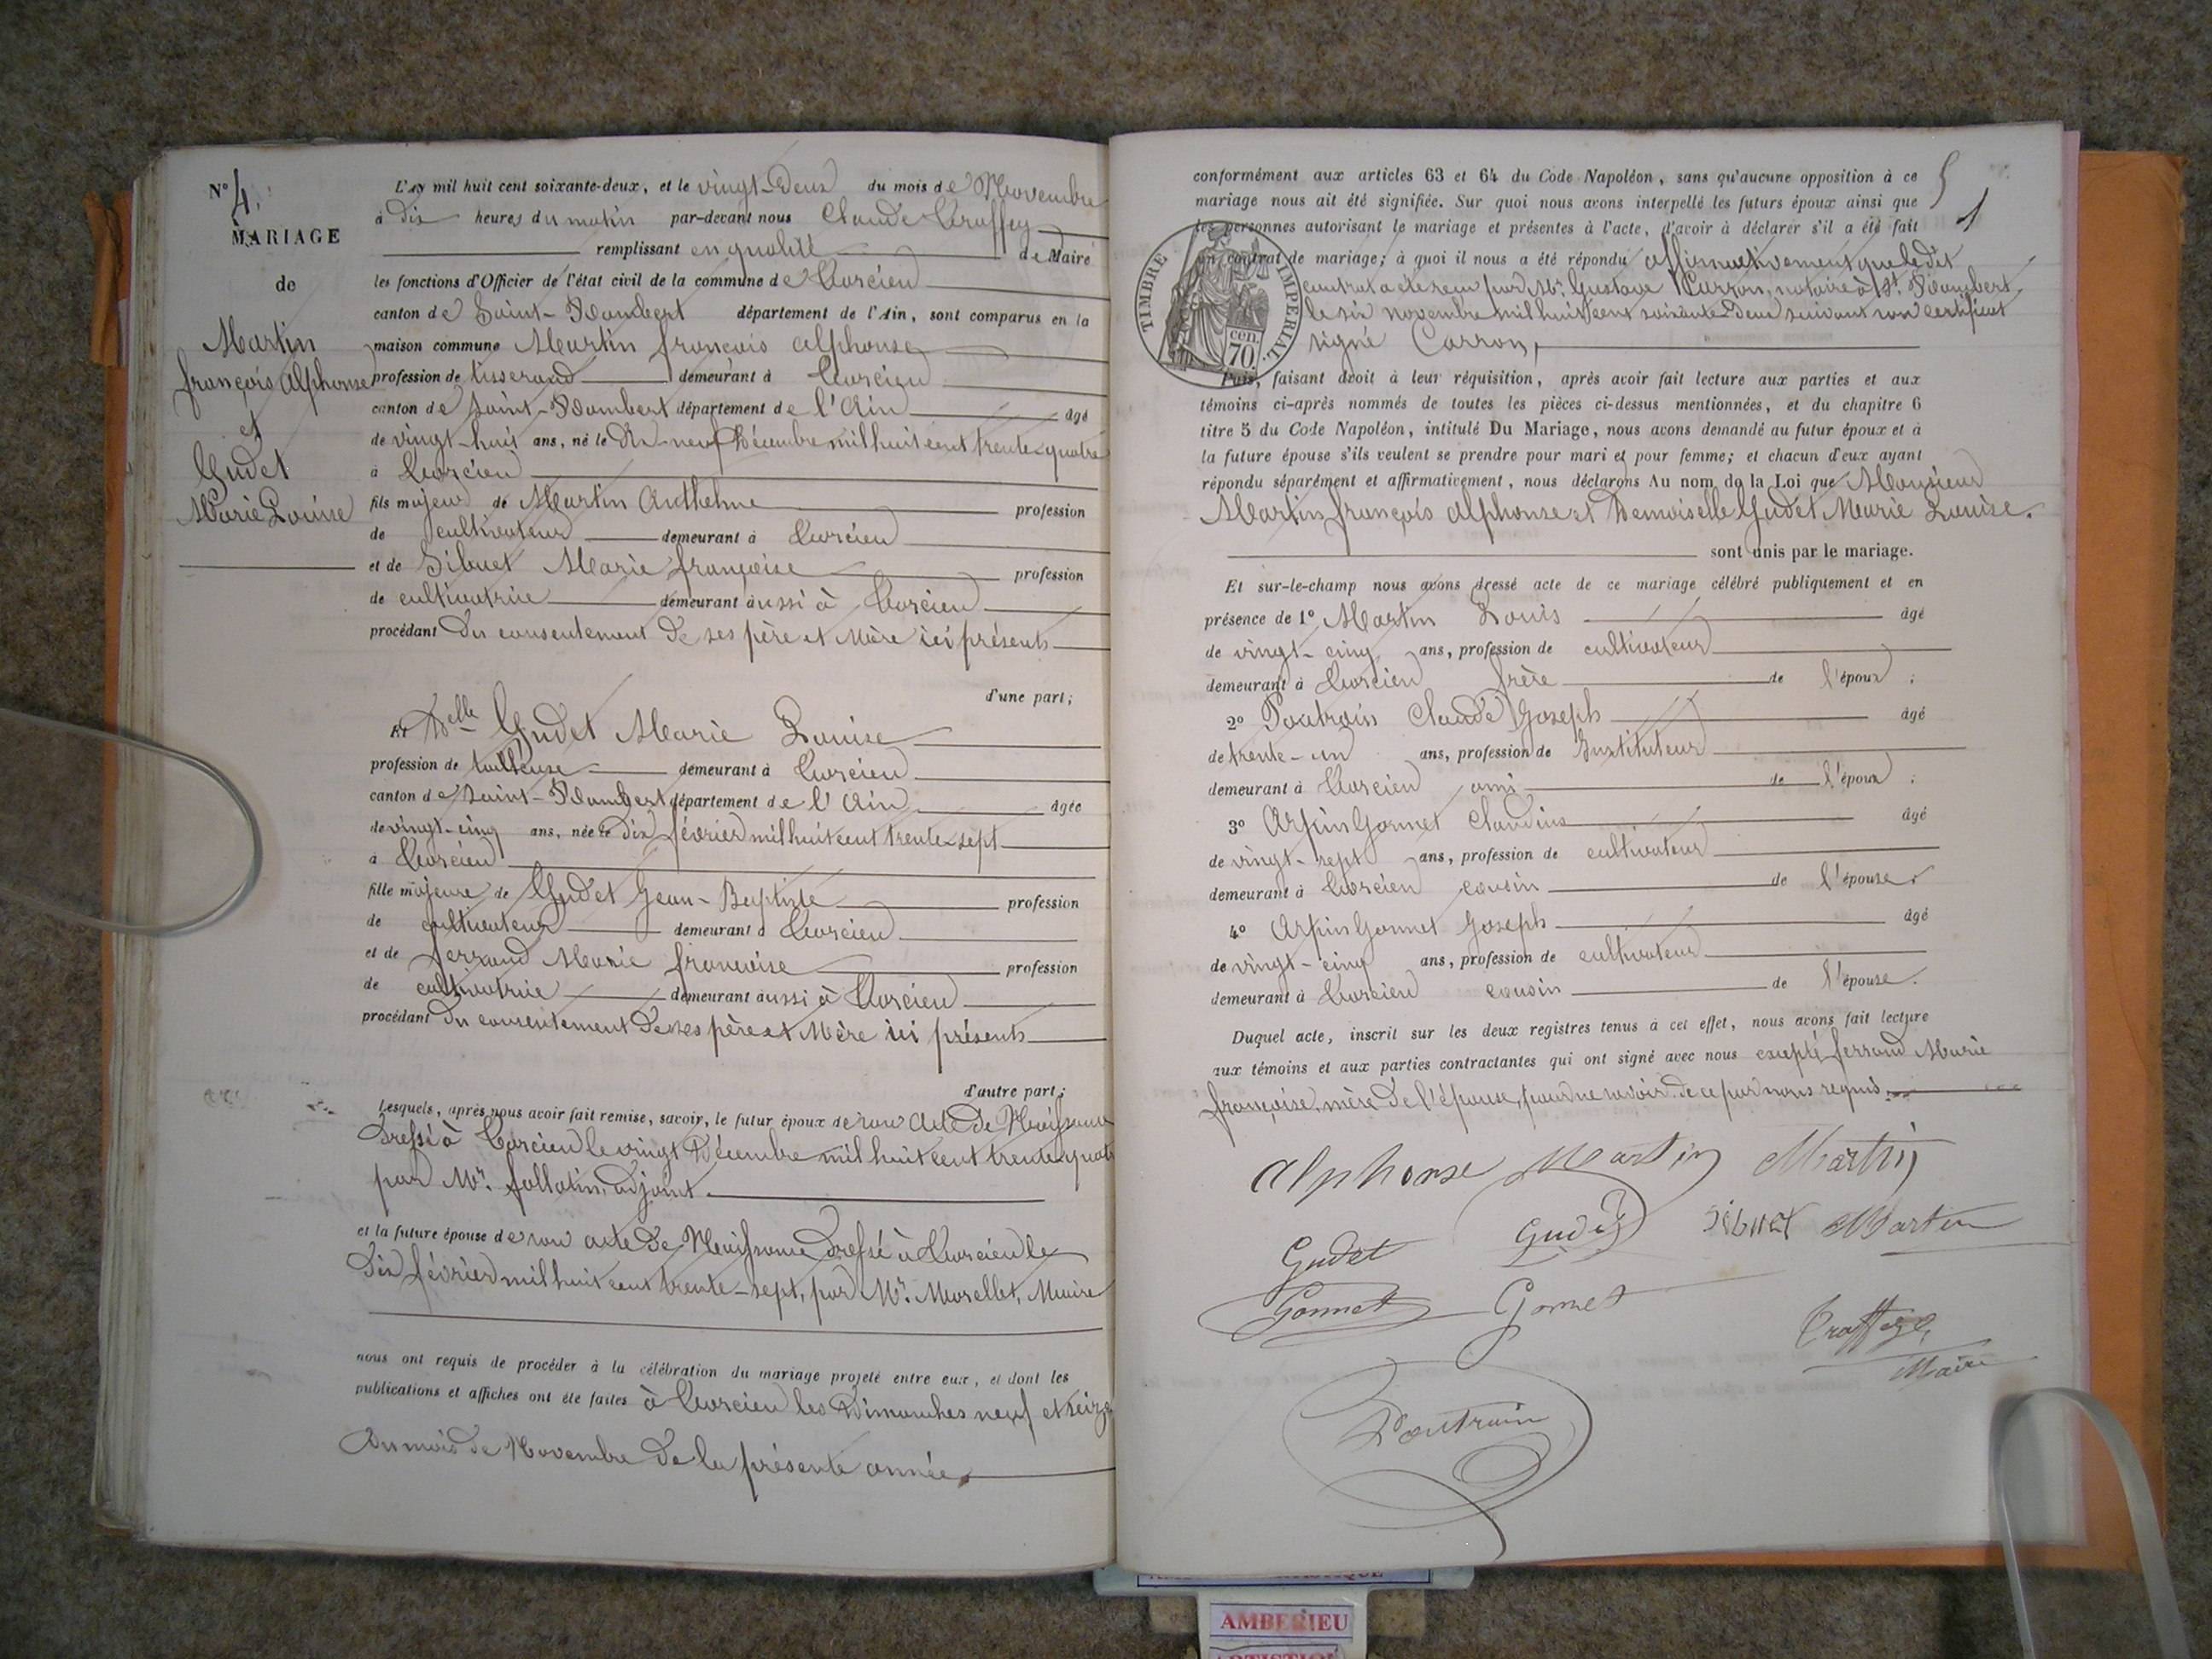 N° 4.
MARIAGE
de
Martin
françois Alphonse
et
Gudet
Marie Louise
L'an mil huit cent soixante-deux, et le vingt-deux du mois de Novembre
à dix heures du matin par-devant nous Claude
remplissant en qualité de Maire
les fonctions d'Officier de l'état civil de la commune de Torcieu
canton de Saint-Rambert département de l'Ain, sont comparus en la
maison commune Martin françois alphonse
profession de tisserand demeurant à Torcieu
canton de Saint-Rambert département de l'Ain âgé
de vingt-huit ans, né le dix-neuf Décembre mil huit cent trente-quatre
à Torcieu
fils majeur de Martin Anthelme profession
de cultivateur demeurant à Torcieu
et de Sibuet Marie françoise profession
de cultivatrice demeurant aussi à Torcieu
procédant du consentement de ses père et Mère ici présents
d'une part;
Et Delle Gudet Marie Louise
profession de demeurant à Torcieu
canton de Saint-Rambert département de l'Ain âgée
de vingt-cinq ans, née le dix février mil huit cent trente-sept
à Torcieu
fille majeure de Gudet Jean-Baptiste profession
de cultivateur demeurant à Torcieu
et de ferrand Marie françoise profession
de cultivatrice demeurant aussi à Torcieu
procédant du consentement de ses père et Mère ici présents
d'autre part;
Lesquels, après nous avoir fait remise, savoir, le futur époux de son Acte de Naissance
dressé à Torcieu le vingt Décembre mil huit cent trente-quatre
par Mr. follatin, adjoint.
et la future épouse de son acte de Naissance dressé à Torcieu le
dix février mil huit cent trente-sept, par Mr. Morellet, Maire
nous ont requis de procéder à la célébration du mariage projeté entre eux, et dont les
publications et affiches ont été faites à Torcieu les Dimanches neuf et seize
du mois de Novembre de la présente année.
5
1
conformément aux articles 63 et 64 du Code Napoléon, sans qu'aucune opposition à ce
mariage nous ait été signifiée. Sur quoi nous avons interpellé les futurs époux ainsi que
les personnes autorisant le mariage et présentes à l'acte, d'avoir à déclarer s'il a été fait
un contrat de mariage; à quoi il nous a été répondu affirmativement que le dit
contrat a été reçu par Mr. Gustave Carron, notaire à St. Rambert
le six novembre mil huit cent soixante-Deux suivant son certificat
signé Carron,
TIMBRE IMPERIAL.
70 cen.
Puis, faisant droit à leur réquisition, après avoir fait lecture aux parties et aux
témoins ci-après nommés de toutes les pièces ci-dessus mentionnées, et du chapitre 6
titre 5 du Code Napoléon, intitulé Du Mariage, nous avons demandé au futur époux et à
la future épouse s'ils veulent se prendre pour mari et pour femme; et chacun d'eux ayant
répondu séparément et affirmativement, nous déclarons Au nom de la Loi que Monsieur
Martin françois alphonse et Demoiselle Gudet Marie Louise.
sont unis par le mariage.
Et sur-le-champ nous avons dressé acte de ce mariage célébré publiquement et en
présence de 1° Martin Louis âgé
de vingt-cinq ans, profession de cultivateur
demeurant à Torcieu frère de l'époux;
2° Poutrain Claude Joseph âgé
de trente-un ans, profession de Instituteur
demeurant à Torcieu ami de l'époux;
3° Arpin Gonnet Claudius âgé
de vingt-sept ans, profession de cultivateur
demeurant à Torcieu cousin de l'épouse;
4° Arpin Gonnet Joseph âgé
de vingt-cinq ans, profession de cultivateur
demeurant à Torcieu cousin de l'épouse.
Duquel acte, inscrit sur les deux registres tenus à cet effet, nous avons fait lecture
aux témoins et aux parties contractantes qui ont signé avec nous excepté ferrand Marie
françoise, mère de l'épouse, pour ne savoir de ce par nous requis.
Alphonse Martin Martin
Gudet Gudet Sibuet Martin
Gonnet Gonnet
Maire
Poutrain
AMBERIEU